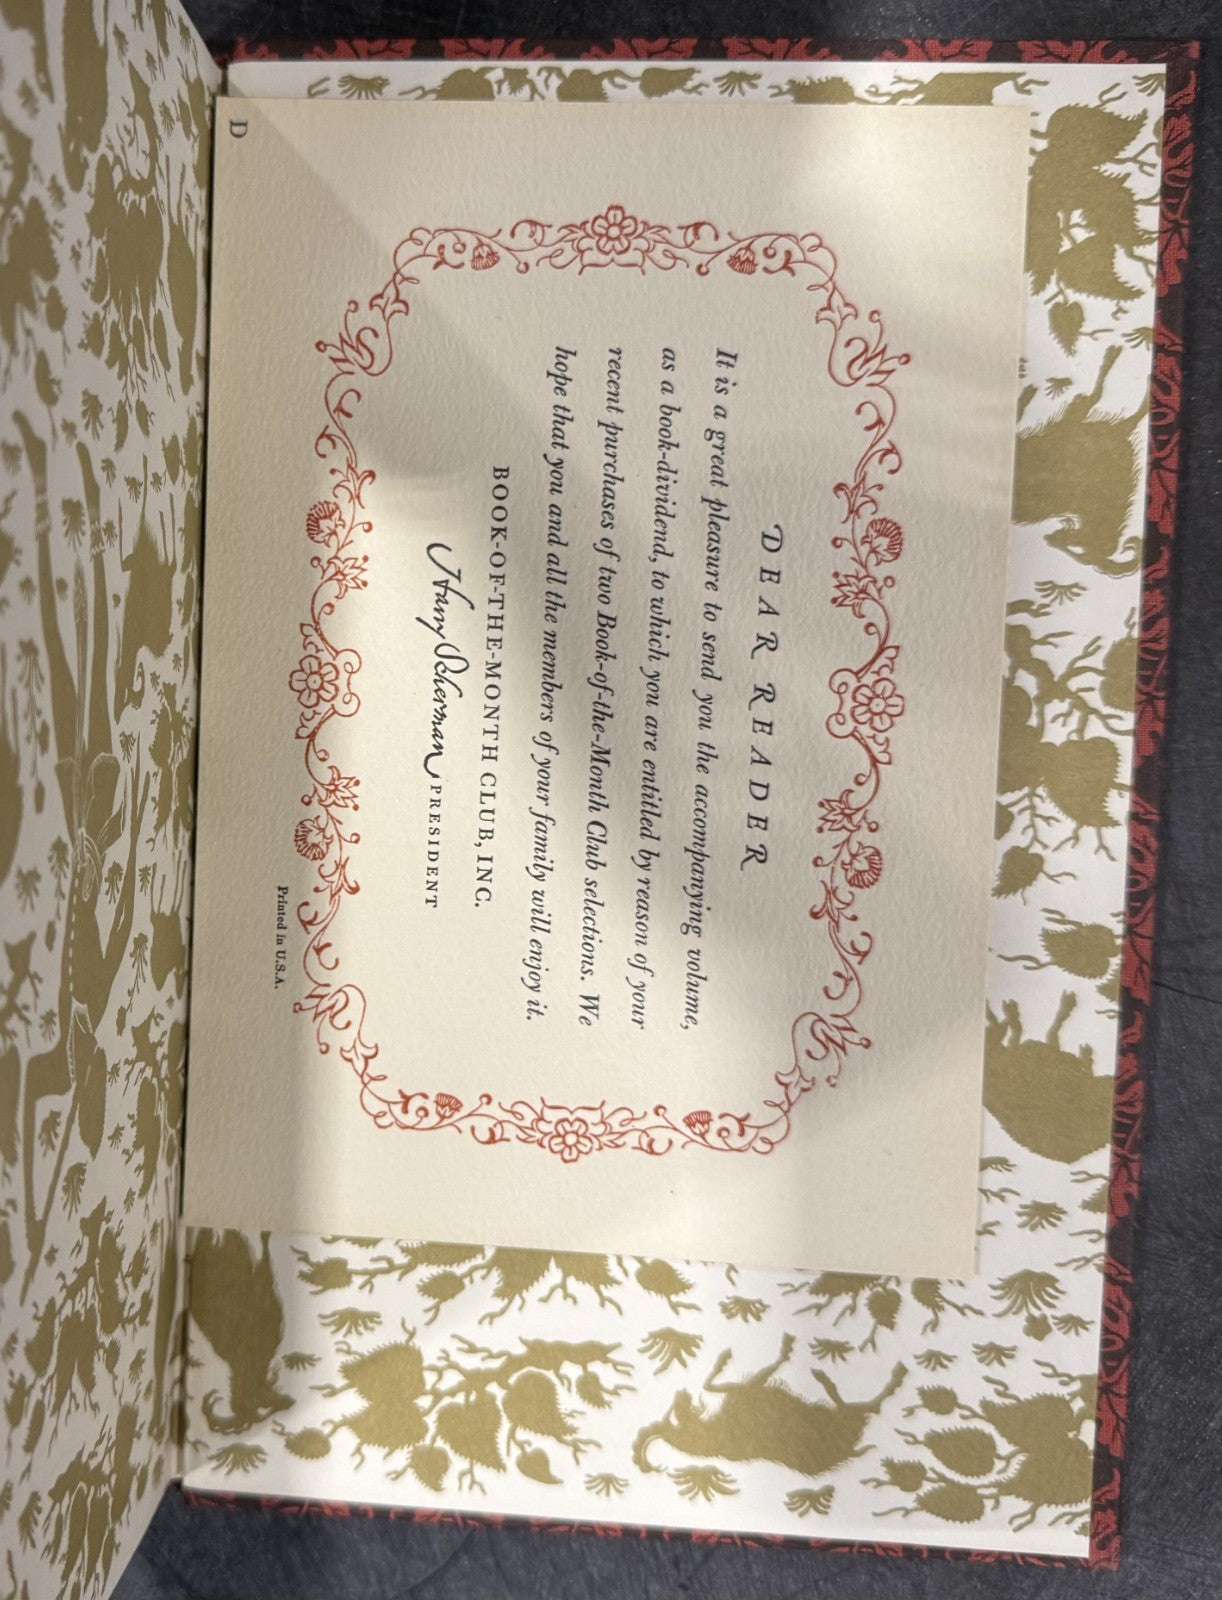 D
DEAR READER
It is a great pleasure to send you the accompanying volume,
as a book-dividend, to which you are entitled by reason of your
recent purchases of two Book-of-the-Month Club selections. We
hope that you and all the members of your family will enjoy it.
BOOK-OF-THE-MONTH CLUB, INC.
Harry Scherman PRESIDENT
Printed in U.S.A.